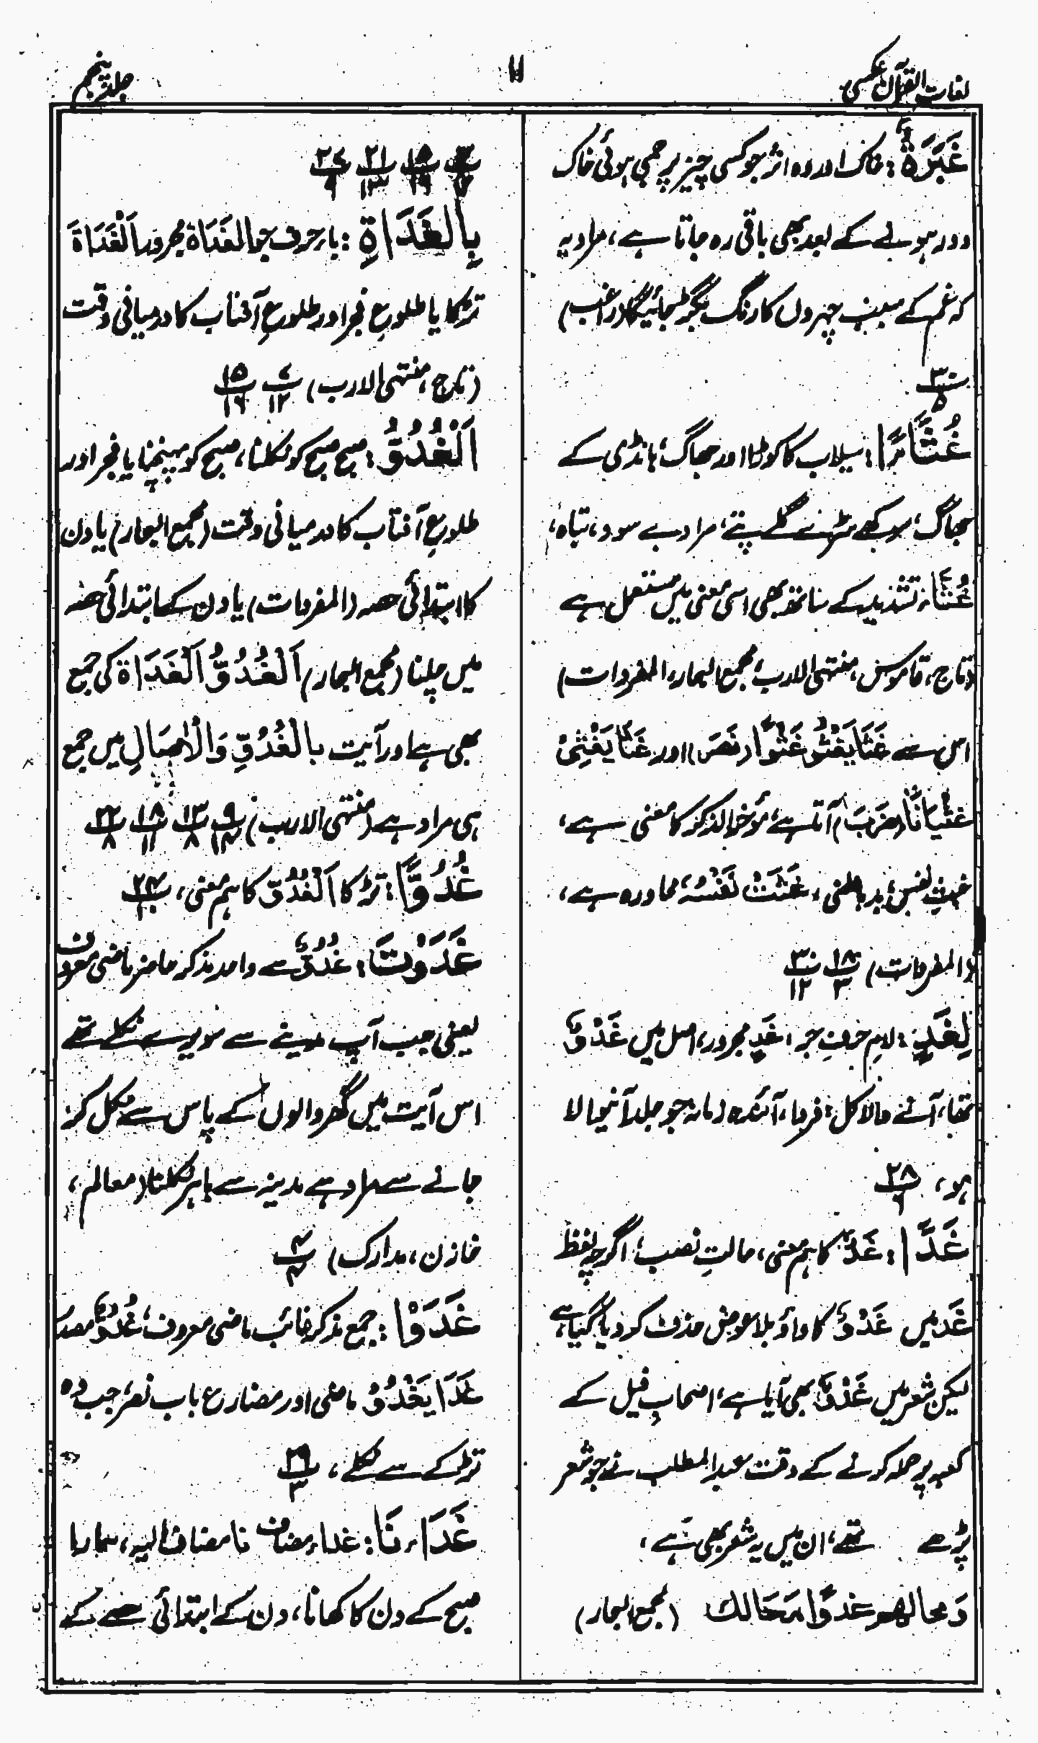 لغات القرآن عکسی
۱۱
جلد پنجم
غَبَرَةٌ : خاک اور وہ اثر جو کسی چیز پر جمی ہوئی خاک
دور ہونے کے بعد بھی باقی رہ جاتا ہے، مراد یہ
کہ غم کے سبب چہروں کا رنگ بگڑ جائیگا (راغب)
۳۰/۵
غُثَآءً : سیلاب کا کوڑا اور جھاگ، ہانڈی کے
جھاگ، سوکھے سڑے گلے پتے، مراد بے سود، تباہ،
غُثَّاءٌ تشدید کے ساتھ بھی اسی معنی میں مستعمل ہے
(تاج، قاموس، منتہی الارب، مجمع البحار، المفردات)
اسی سے غَثَا يَغْثُوْ غَثْوًا (نَصَرَ) اور غَثَا يَغْثِيْ
غَثْيَانًا (ضَرَبَ) آتا ہے، مؤخر الذکر کا معنی ہے،
خبثِ نفس، بدباطنی، غَثَتْ نَفْسُهٗ محاورہ ہے،
(المفردات) ۱۸/۳ ۳۰/۱۲
لِغَدٍ : لام حرفِ جر، غَدٍ مجرور، اصل میں غَدْوٌ
تھا، آنے والا کل، فردا، آئندہ زمانہ جو جلد آنیوالا
ہو، ۲۸/۶
غَدًا : غَدٌ کا ہم معنی، حالتِ نصب، اگرچہ لفظ
غَد میں غَدْوٌ کا واؤ بلاعوض حذف کردیا گیا ہے،
لیکن شعر میں غَدْوٌ بھی آیا ہے، اصحابِ فیل کے
کعبہ پر حملہ کرنے کے وقت عبدالمطلب نے جو شعر
پڑھے تھے، ان میں یہ شعر بھی ہے،
وَمحالهم غدوًا مَحَالك (مجمع البحار)
۱۵/۱۶ ۲۱/۱۳ ۲۴/۹
بِالْغَدَاةِ : بار حرف جر الغَدَاة مجرور اَلْغَدَاةَ
تڑکا یا طلوعِ فجر اور طلوعِ آفتاب کا درمیانی وقت
(تاج، منتہی الارب) ۷/۱۲ ۱۵/۱۶
اَلْغُدُوُّ : صبح صبح کو نکلنا، صبح کو پہنچنا یا فجر اور
طلوعِ آفتاب کا درمیانی وقت (مجمع البحار) یا دن
کا ابتدائی حصہ (المفردات) یا دن کے ابتدائی حصہ
میں چلنا (مجمع البحار) اَلْغُدُوُّ الْغَدَاة کی جمع
بھی ہے اور آیت بالْغُدُوِّ وَالْاٰصَالِ میں جمع
ہی مراد ہے (منتہی الارب) ۹/۱۴ ۱۳/۸ ۱۸/۱۱ ۲۲/۸
غُدُوًّا : تڑکا اَلْغُدُوّ کا ہم معنی، ۲۴/۱۰
غَدَوْتَ : غُدُوٌّ سے واحد مذکر حاضر ماضی معروف
یعنی جب آپ مدینے سے سویرے نکلے تھے
اس آیت میں گھر والوں کے پاس سے نکل کر
جانے سے مراد ہے مدینہ سے باہر نکلنا (معالم،
خازن، مدارک) ۴/۴
غَدَوْا : جمع مذکر غائب ماضی معروف، غُدُوٌّ مصدر
غَدَا يَغْدُوْ ماضی اور مضارع باب نصر، جب وہ
تڑکے سے نکلے، ۲۹/۳
غَدَآءَنَا : غداء مضاف نا مضاف الیہ، ہمارا
صبح کے دن کا کھانا، دن کے ابتدائی حصے کے